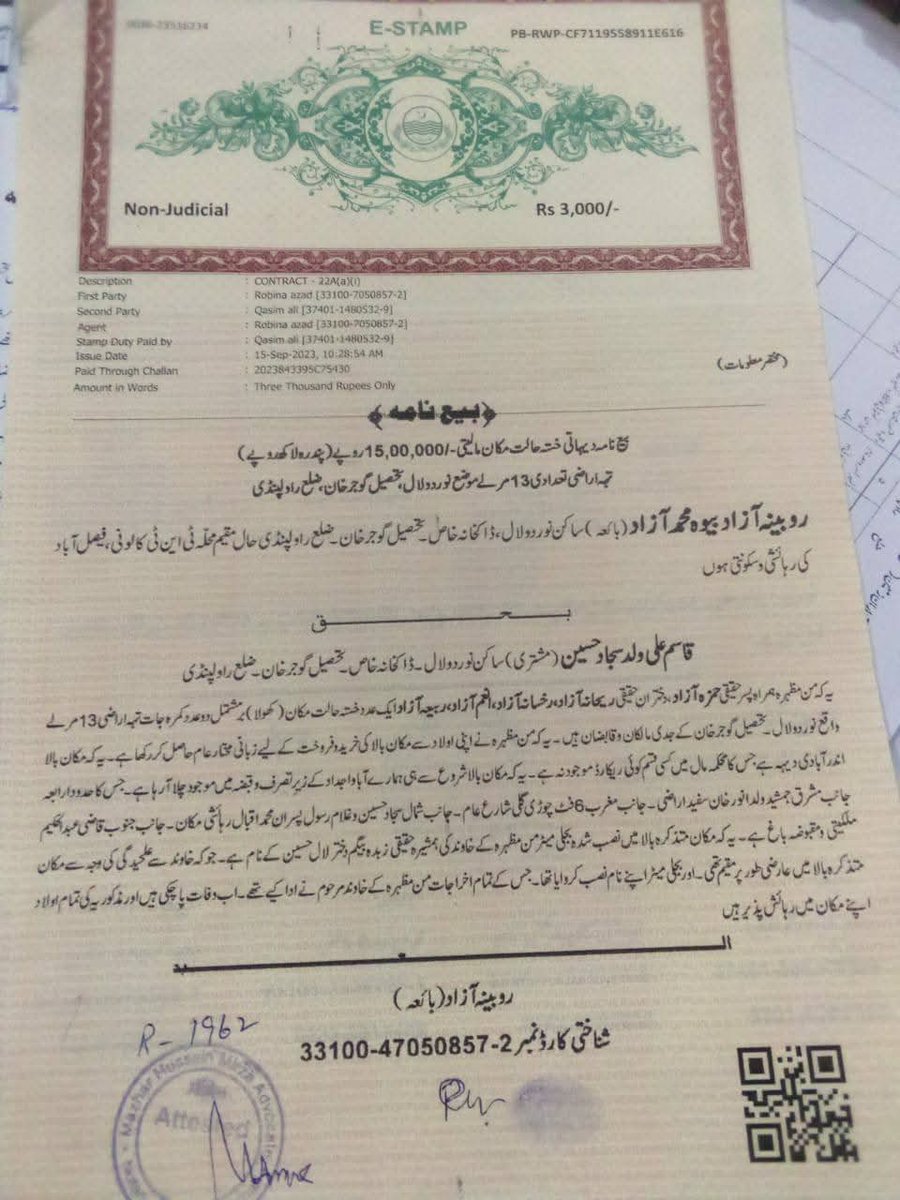 E-STAMP
PB-RWP-CF7119558911E616
Non-Judicial
Rs 3,000/-
Description : CONTRACT - 22A(a)(i)
First Party : Robina azad [33100-7050857-2]
Second Party : Qasim ali [37401-1480532-9]
Agent : Robina azad [33100-7050857-2]
Stamp Duty Paid by : Qasim ali [37401-1480532-9]
Issue Date : 15-Sep-2023, 10:28:54 AM
Paid Through Challan : 2023843395C75430
Amount in Words : Three Thousand Rupees Only
(مختصر معلومات)
﴿بیع نامہ﴾
بیع نامہ دیہاتی خستہ حالت مکان مالیتی -/15,00,000 روپے (پندرہ لاکھ روپے)
تہہ اراضی تعدادی 13 مرلے موضع نور دولال، تحصیل گوجر خان، ضلع راولپنڈی
روبینہ آزاد بیوہ محمد آزاد (بائعہ) ساکن نور دولال، ڈاکخانہ خاص۔ تحصیل گوجر خان۔ ضلع راولپنڈی حال مقیم محلہ ٹی این ٹی کالونی، فیصل آباد
کی رہائشی و سکونتی ہوں
بحق
قاسم علی ولد سجاد حسین (مشتری) ساکن نور دولال۔ ڈاکخانہ خاص۔ تحصیل گوجر خان۔ ضلع راولپنڈی
یہ کہ من مظہرہ ہمراہ پسر حقیقی حمزہ آزاد، دختران حقیقی ریحانہ آزاد، رخسانہ آزاد، انعم آزاد، ربیعہ آزاد ایک عدد خستہ حالت مکان (کھولا) مشتمل دو عدد کمرہ جات تہہ اراضی 13 مرلے
واقع نور دولال۔ تحصیل گوجر خان کے جدی مالکان و قابضان ہیں۔ یہ کہ من مظہرہ نے اپنی اولاد سے مکان بالا کی خرید و فروخت کے لیے زبانی مختار عام حاصل کر رکھا ہے۔ یہ کہ مکان بالا
اندر آبادی دیہہ ہے جس کا محکمہ مال میں کسی قسم کوئی ریکارڈ موجود نہ ہے۔ یہ کہ مکان بالا شروع سے ہی ہمارے آباؤ اجداد کے زیر تصرف و قبضہ میں موجود چلا آ رہا ہے۔ جس کا حدود اربعہ
جانب مشرق جمشید ولد انور خان سفید اراضی۔ جانب مغرب 6 فٹ چوڑی گلی شارع عام۔ جانب شمال سجاد حسین و غلام رسول پسران محمد اقبال رہائشی مکان۔ جانب جنوب قاضی عبدالحکیم
ملکیتی و مقبوضہ باغ ہے۔ یہ کہ مکان متذکرہ بالا میں نصب شدہ بجلی میٹر من مظہرہ کے خاوند کی ہمشیرہ حقیقی زبدہ بیگم دختر لال حسین کے نام ہے۔ جو کہ خاوند سے علیحدگی کی وجہ سے مکان
متذکرہ بالا میں عارضی طور پر مقیم تھی۔ اور بجلی میٹر اپنے نام نصب کروایا تھا۔ جس کے تمام اخراجات من مظہرہ کے خاوند مرحوم نے ادا کیے تھے۔ اب وفات پا چکی ہیں اور مذکوریہ کی تمام اولاد
اپنے مکان میں رہائش پذیر ہیں
العبد
روبینہ آزاد (بائعہ)
شناختی کارڈ نمبر 33100-47050857-2
R-1962
Mazhar Hussain Mirza Advocate
Attested